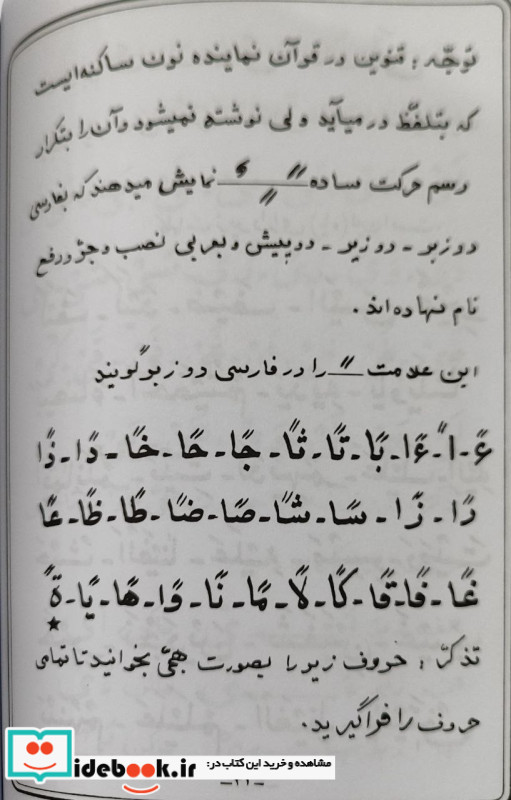 توجّه : تنوین در قرآن نماینده نون ساکنه ایست
که بتلفّظ در میآید ولی نوشته نمیشود وآن را بتکرار
رسم حرکت ساده ــًــٍــٌ نمایش میدهند که بفارسی
دوزبر - دوزیر - دوپیش و بعربی نصب وجرّ ورفع
نام نهاده اند .
این علامت ــً را در فارسی دوزبر گویند
ءً - اً - ءًا - بًا - تًا - ثًا - جًا - حًا - خًا - دًا - ذًا
رًا - زًا - سًا - شًا - صًا - ضًا - طًا - ظًا - عًا
غًا - فًا - قًا - کًا - لًا - مًا - نًا - وًا - هًا - یًا - ةً
★
تذکّر : حروف زیر را بصورت هجّی بخوانید تا تمامی
حروف را فراگیرید .
مشاهده و خرید این کتاب در:
idebook.ir